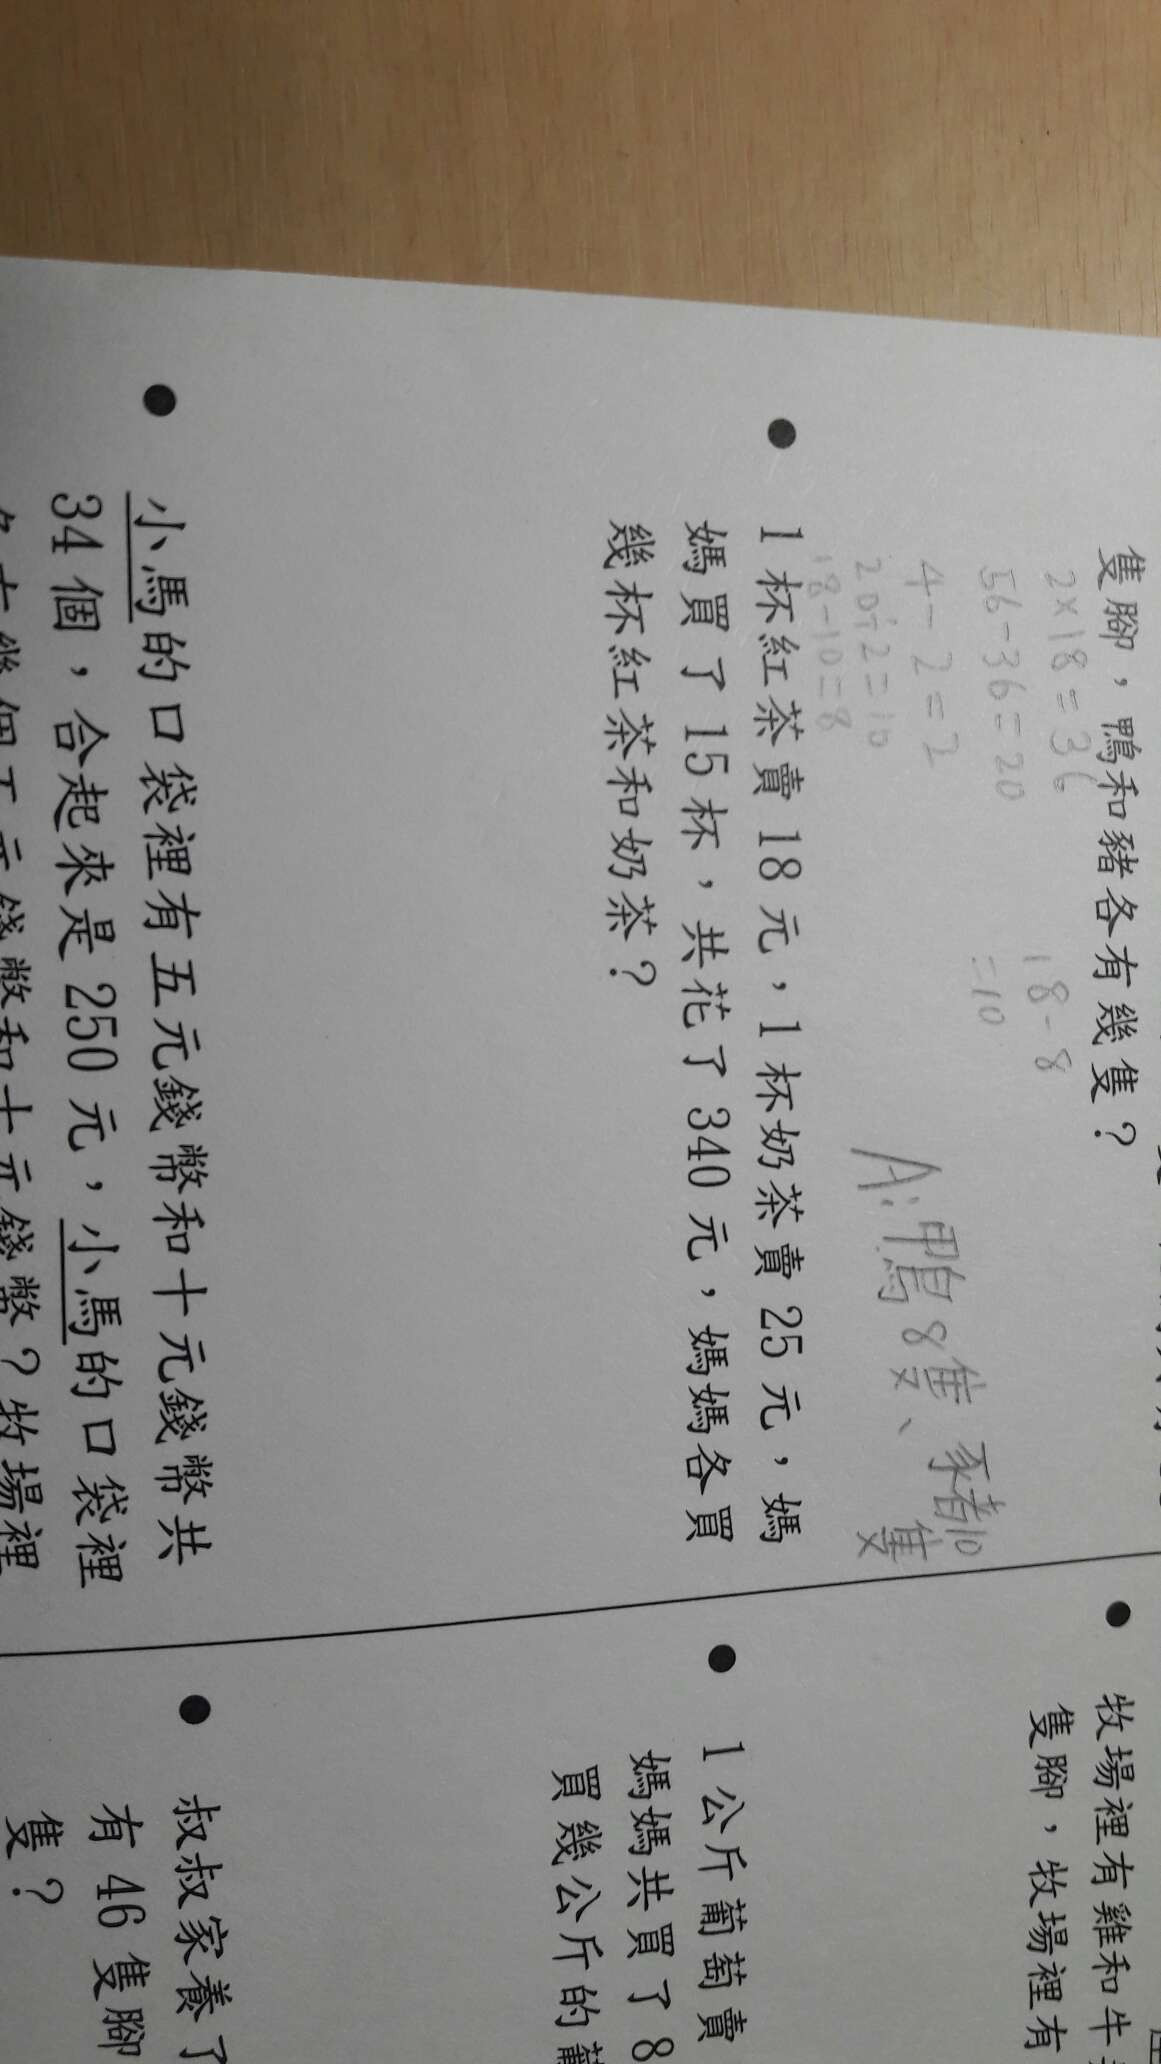 隻腳，鴨和豬各有幾隻？
2×18=36
56-36=20
4-2=2
20÷2=10
18-10=8
18-8
=10
A:鴨8隻、豬10
隻
● 1杯紅茶賣18元，1杯奶茶賣25元，媽
媽買了15杯，共花了340元，媽媽各買
幾杯紅茶和奶茶？
● 小馬的口袋裡有五元錢幣和十元錢幣共
34個，合起來是250元，小馬的口袋裡
各有幾個五元錢幣和十元錢幣？牧場裡
● 牧場裡有雞和牛
隻腳，牧場裡有
● 1公斤葡萄賣
媽媽共買了8
買幾公斤的葡
● 叔叔家養了
有46隻腳
隻？